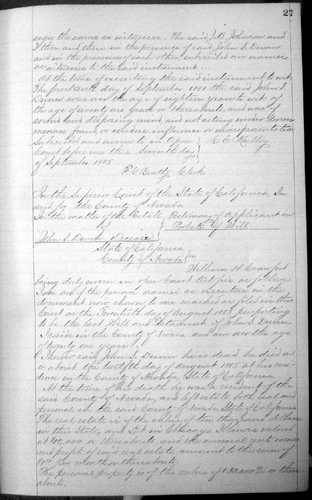 27
sign the same as witnesses. The said J. B. Johnson and
I then and there in the presence of said John S. Dunn
and in the presence of each other, subscribed our names
as witnesses to the said instrument.
At the time of executing the said instrument to wit,
The fourteenth day of September 1881 the said John S.
Dunn was over the age of eighteen years to wit of
the age of years or thereabout, and was of
sound and disposing mind, and not acting under duress
menace, fraud, or undue influence or misrepresentation
Subscribed and sworn to in Open
Court before me this Seventh day
of September 1885
Beatty Clerk
In the Superior Court of the State of California, In
and for the County of Nevada
In the matter of the Estate Testimony of Applicant on
of Probate of Will
John S. Dunn Deceased
State of California
County of Nevada ss
William H. Crawford
being duly sworn in open Court testifies as follows
I am one of the persons named as executors in the
document now shown to me marked as filed in this
Court on the Twentieth day of August 1885 purporting
to be the last Will and testament of John S. Dunn.
I reside in the County of Nevada and am over the age
of twenty one years
The said John S. Dunn is dead he died on
or about the twelfth day of August 1885 at his resi-
dence in the County of Nevada State of California
At the time of his death he was a resident of the
said County of Nevada, and left estate both real and
personal in the said County of Nevada State of California
The real estate is of the value of ten thousand dollars
in this State, and Lot in Chicago Illinois valued
at $10,000 or thereabouts and the annual rents issues
and profits of said real estate amount to the sum of
per month or thereabouts
The personal property is of the value of or there-
abouts.